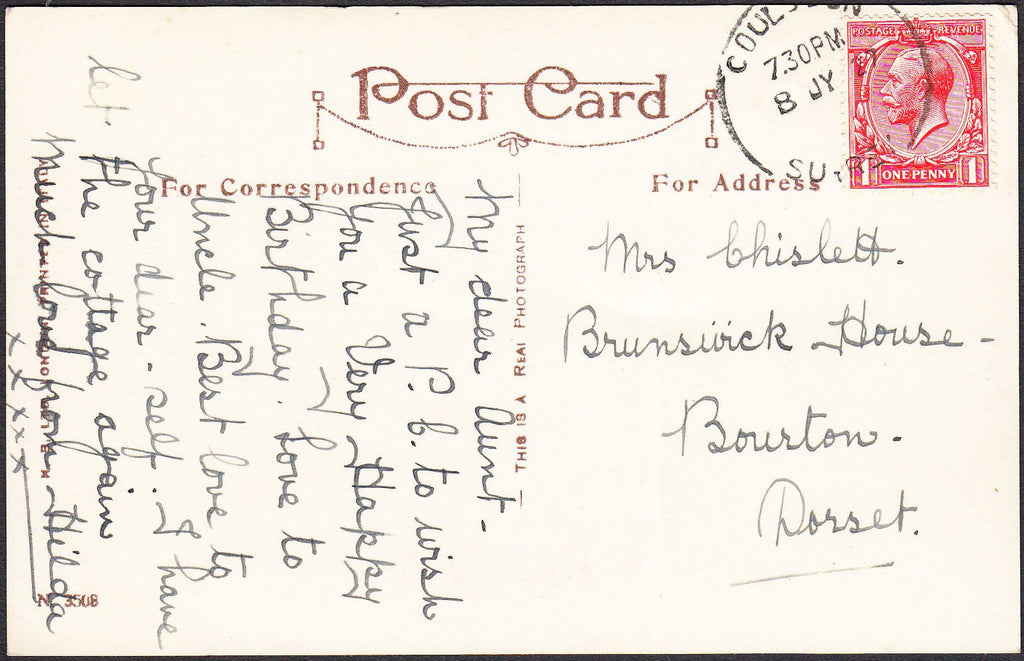 Post Card
For Correspondence
For Address
THIS IS A REAL PHOTOGRAPH
COULSDON
7.30 PM
8 JY
SURREY
POSTAGE REVENUE
1 ONE PENNY 1
Mrs Chislett.
Brunswick House -
Bourton -
Dorset.
My dear Aunt -
Just a P.C. to wish
You a Very Happy
Birthday. Love to
Uncle. Best love to
Your dear - self. I have
let
the cottage again
Much love from Hilda
x x x x x
No 3508